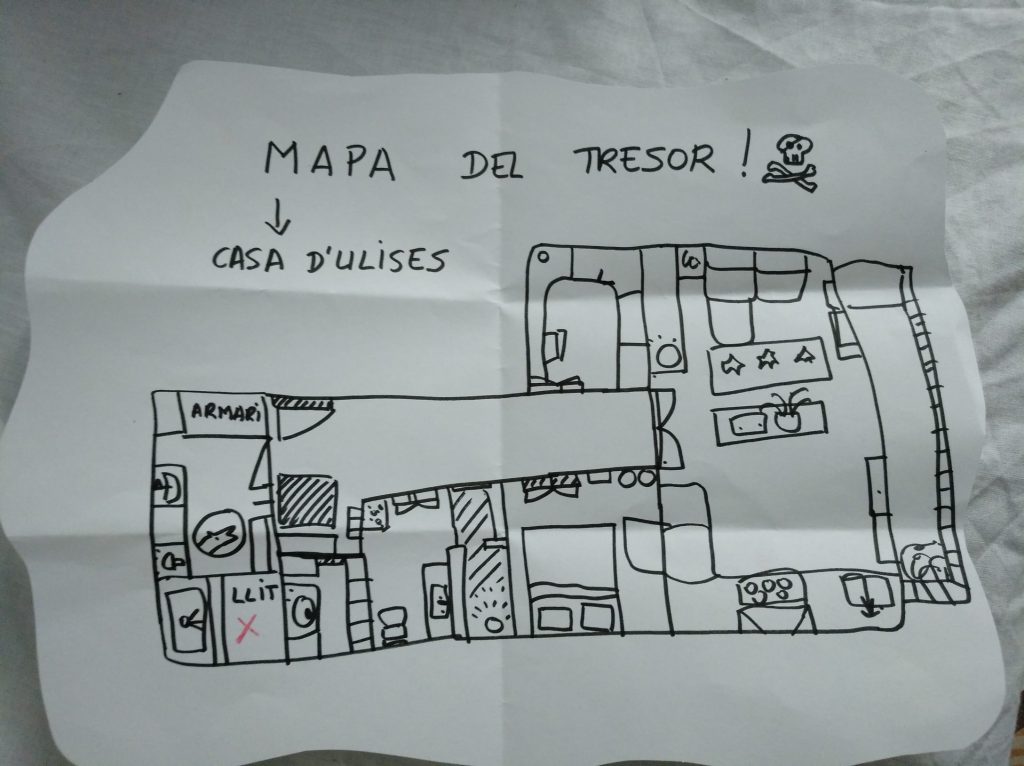 MAPA DEL TRESOR!
CASA D'ULISES
ARMARI
LLIT
X